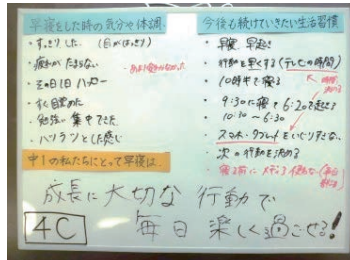 早寝をした時の気分や体調
・すっきりした (目がぱっちり)
・疲れがたまらない
・その日1日ハッピー
・すぐ目覚めた
・勉強に集中できた
・ハツラツとした感じ
今後も続けていきたい生活習慣
・早寝 早起き
・行動を早くする(テレビの時間)
・10時半で寝る
・9:30に寝て6:20で起きる
10:30〜6:30
・スマホ・タブレットをいじりすぎない
・次の行動を決める
・寝る前にメディアを使わない
中1の私たちにとって早寝は、
成長に大切な行動で
毎日楽しく過ごせる!
4C